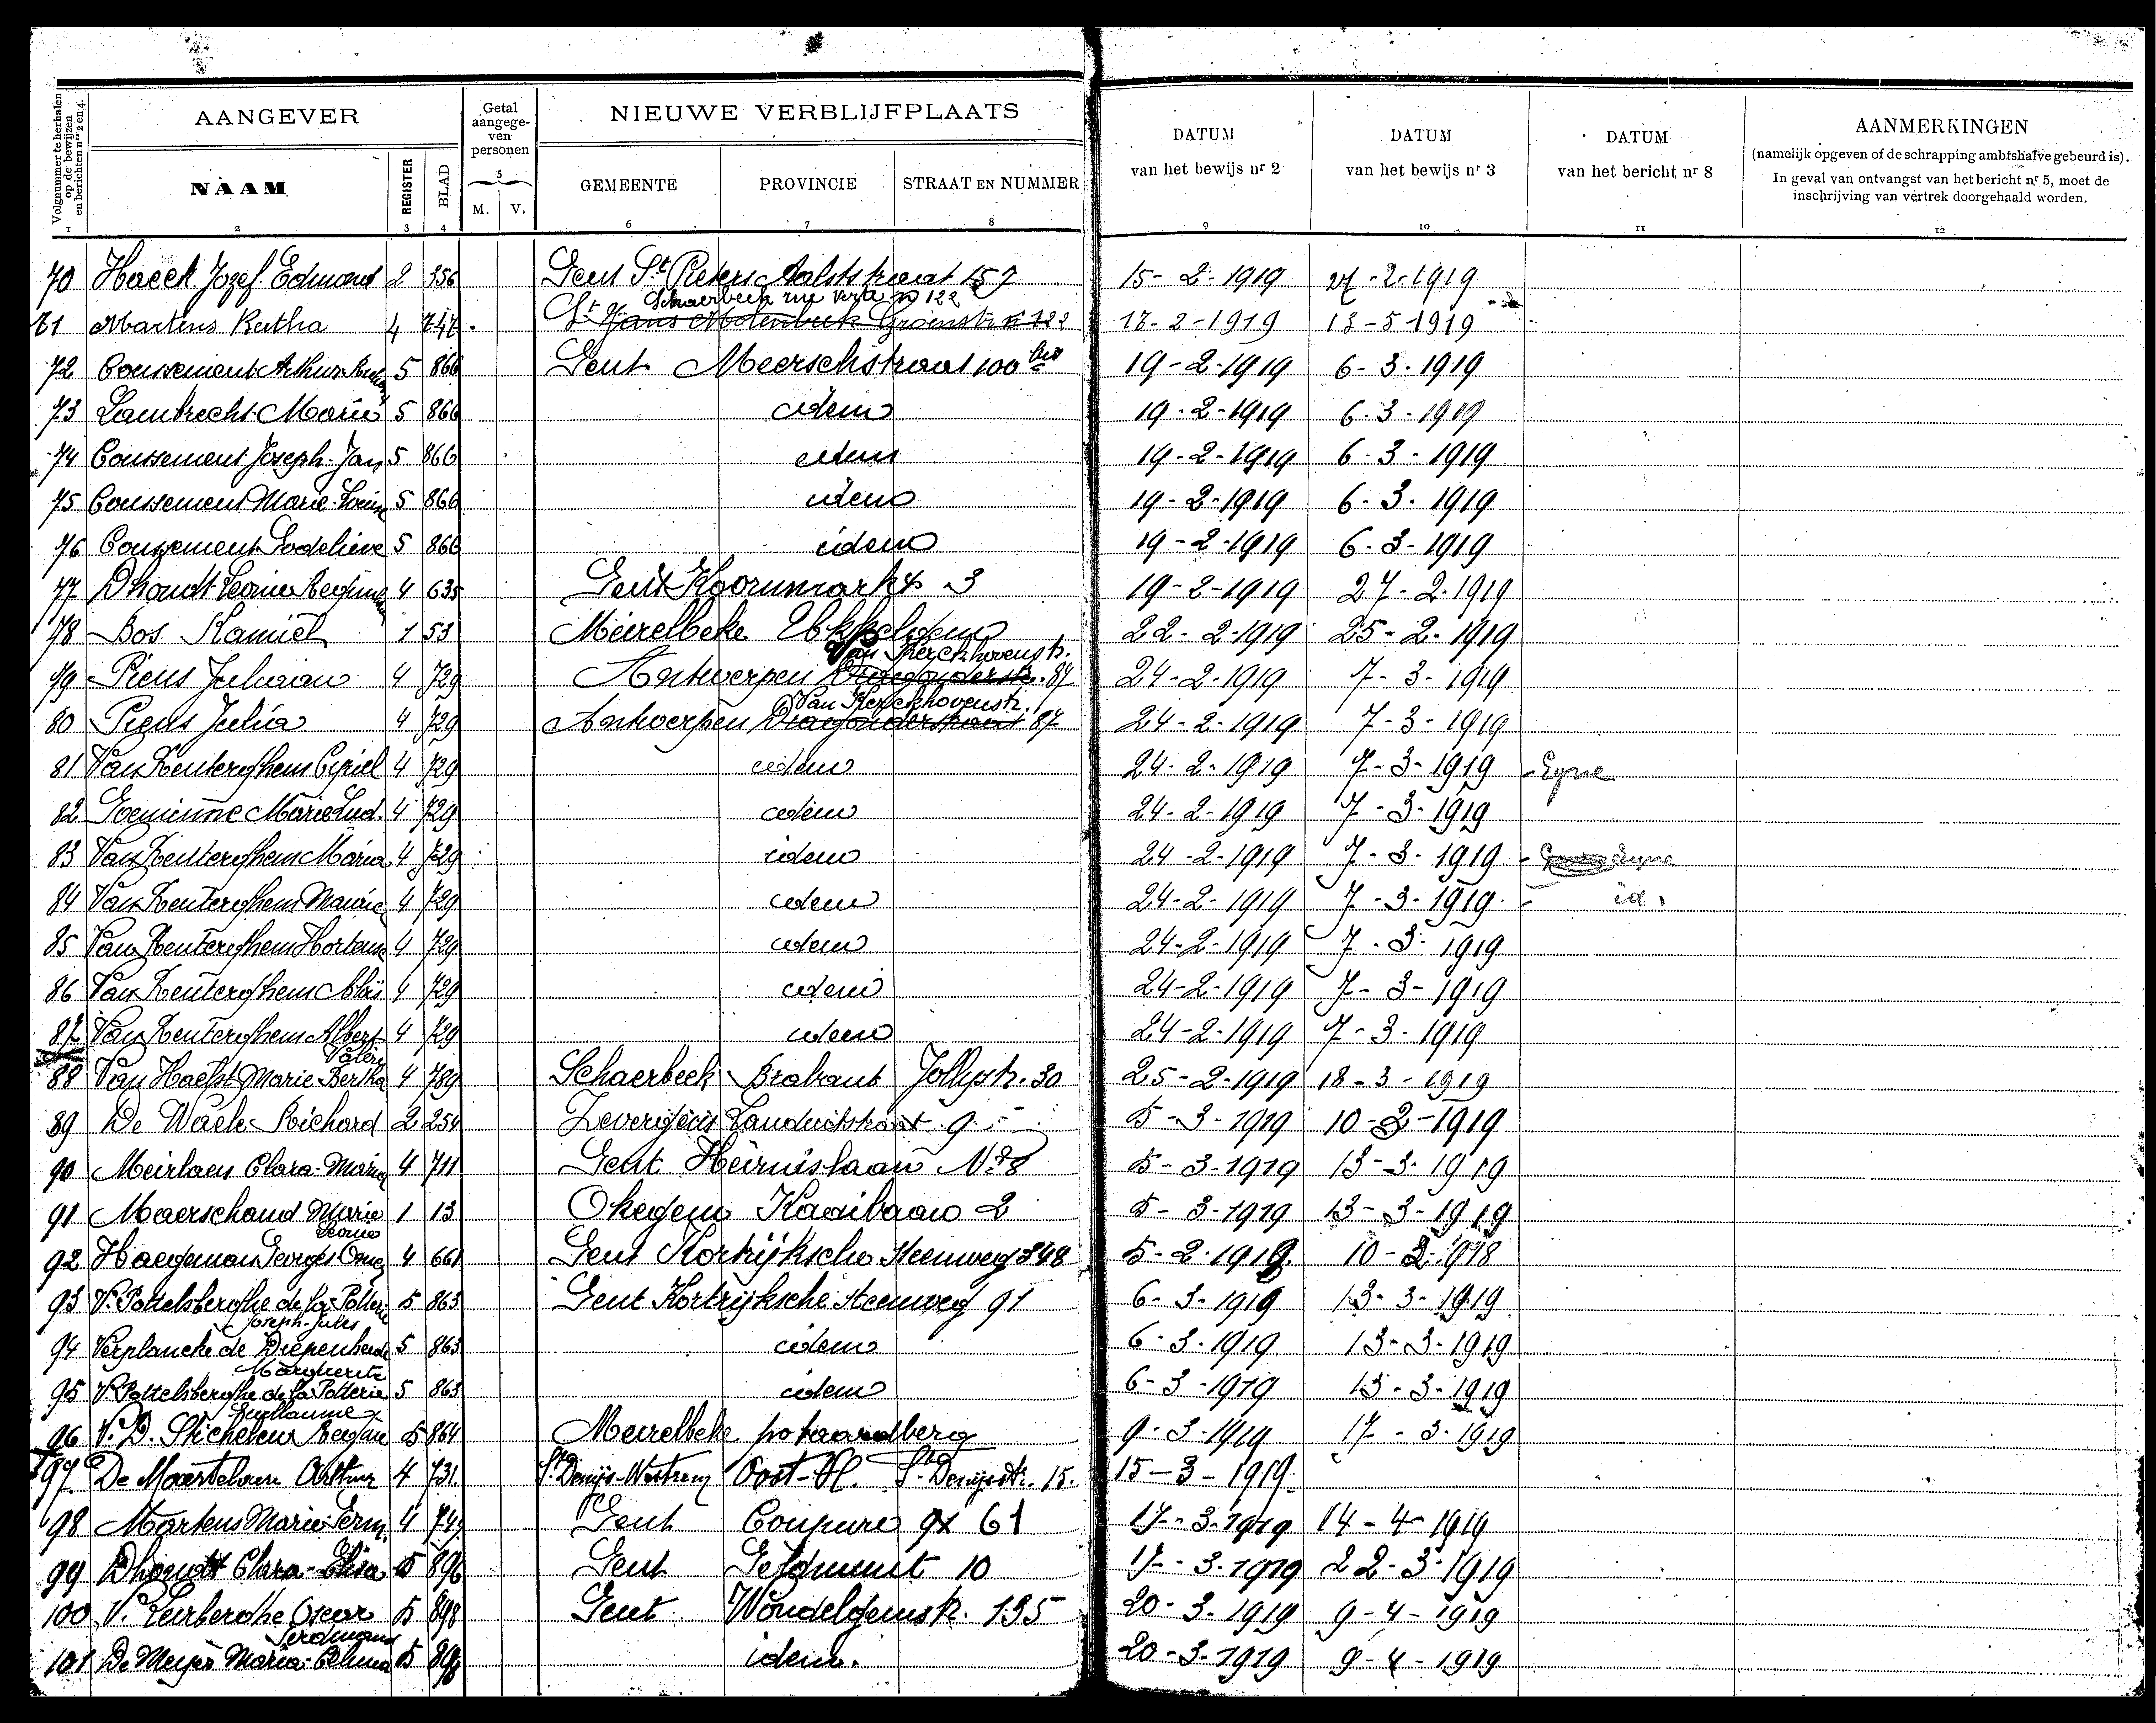 Volgnummer te herhalen op de bewijzen en berichten nrs 2 en 4.
AANGEVER
Getal aangegeven personen
NIEUWE VERBLIJFPLAATS
DATUM van het bewijs nr 2
DATUM van het bewijs nr 3
DATUM van het bericht nr 8
AANMERKINGEN
(namelijk opgeven of de schrapping ambtshalve gebeurd is).
In geval van ontvangst van het bericht nr 5, moet de
inschrijving van vertrek doorgehaald worden.
NAAM REGISTER BLAD M. V. GEMEENTE PROVINCIE STRAAT EN NUMMER
1 2 3 4 5 6 7 8 9 10 11 12
70 Haeck Jozef Edmond 2 356 Gent St Pieters Aalststraat 157 15-2-1919 27-2-1919
Schaerbeek rue verte no 122
71 Martens Bertha 4 747 St Jans Molenbeek Groenstr. n 122 17-2-1919 13-5-1919
72 Coussement Arthur 5 866 Gent Meerschstraat 100 bis 19-2-1919 6-3-1919
73 Lambrecht Marie 5 866 idem 19-2-1919 6-3-1919
74 Coussement Joseph-Jan 5 866 idem 19-2-1919 6-3-1919
75 Coussement Marie-Louise 5 866 idem 19-2-1919 6-3-1919
76 Coussement Godelieve 5 866 idem 19-2-1919 6-3-1919
77 Dhondt Leonie 4 635 Gent Koornmarkt 3 19-2-1919 27-2-1919
78 Bos Kamiel 1 53 Meirelbeke 22-2-1919 25-2-1919
Van Kerckhovenstr.
79 Piens Juliaan 4 729 Antwerpen Dragonderstr. 87 24-2-1919 7-3-1919
Van Kerckhovenstr.
80 Piens Julia 4 729 Antwerpen Dragonderstraat 87 24-2-1919 7-3-1919
81 Van Renterghem Cyriel 4 729 idem 24-2-1919 7-3-1919 Eyne
82 Marie Lud. 4 729 idem 24-2-1919 7-3-1919
83 Van Renterghem Maria 4 729 idem 24-2-1919 7-3-1919 Eyne
84 Van Renterghem Maurice 4 729 idem 24-2-1919 7-3-1919 id.
85 Van Renterghem Hortense 4 729 idem 24-2-1919 7-3-1919
86 Van Renterghem Aloïs 4 729 idem 24-2-1919 7-3-1919
87 Van Renterghem Albert 4 729 idem 24-2-1919 7-3-1919
Valerie
88 Van Haelst Marie-Bertha 4 789 Schaerbeek Brabant Jollystr. 30 25-2-1919 18-3-1919
89 De Waele Richard 2 254 Zevergem 9 5-3-1919 10-3-1919
90 Meirlaen Clara-Maria 4 711 Gent Heirnislaan No 8 5-3-1919 13-3-1919
91 Maerschand Marie 1 13 Okegem Kaaibaan 2 5-3-1919 13-3-1919
Leonie
92 Haegeman Georges Omer 4 661 Gent Kortrijksche Steenweg 348 5-2-1919 10-2-1918
93 V. Pottelsberghe de la Potterie 5 863 Gent Kortrijksche Steenweg 91 6-3-1919 13-3-1919
Joseph-Jules
94 Verplancke de Diepenhede 5 863 idem 6-3-1919 13-3-1919
Marguerite
95 V. Pottelsberghe de la Potterie 5 863 idem 6-3-1919 13-3-1919
Guillaume
96 V. D. Stichelen 5 864 Meirelbeke potaardberg 9-3-1919 17-3-1919
97 De Maertelaere Arthur 4 731 St Denijs-Westrem Oost-Vl. St Denijsstr. 15. 15-3-1919
98 Martens Marie Germ. 4 747 Gent Coupure 61 17-3-1919 14-4-1919
99 Dhondt Clara-Elisa 5 896 Gent Geldmunt 10 17-3-1919 22-3-1919
100 V. Leirberghe Oscar 5 898 Gent Wondelgemstr. 135 20-3-1919 9-4-1919
Ferdinand
101 De Meyer Maria-Celina 5 898 idem. 20-3-1919 9-4-1919